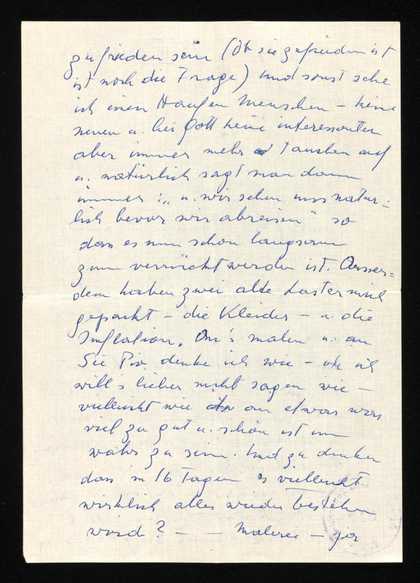 zufrieden sein (Ob sie zufrieden ist
ist noch die Frage) und sonst sehe
ich einen Haufen Menschen – keine
neuen u. bei Gott keine interessanten
aber immer mehr tauchen auf
u. natürlich sagt man dann
immer: „u. wir sehen uns natür-
lich bevor wir abreisen" so
dass es nun schon langsam
zum verrückt werden ist. Ausser-
dem haben zwei alte Laster mich
gepackt – die Kleider – u. die
Inflation. Ans malen u. an
Sie Pix denke ich wie – oh ich
will's lieber nicht sagen wie –
vielleicht wie an etwas was
viel zu gut u. schön ist um
wahr zu sein. Und zu denken
dass in 16 Tagen es vielleicht
wirklich alles wieder bestehen
wird? – – Malerei –